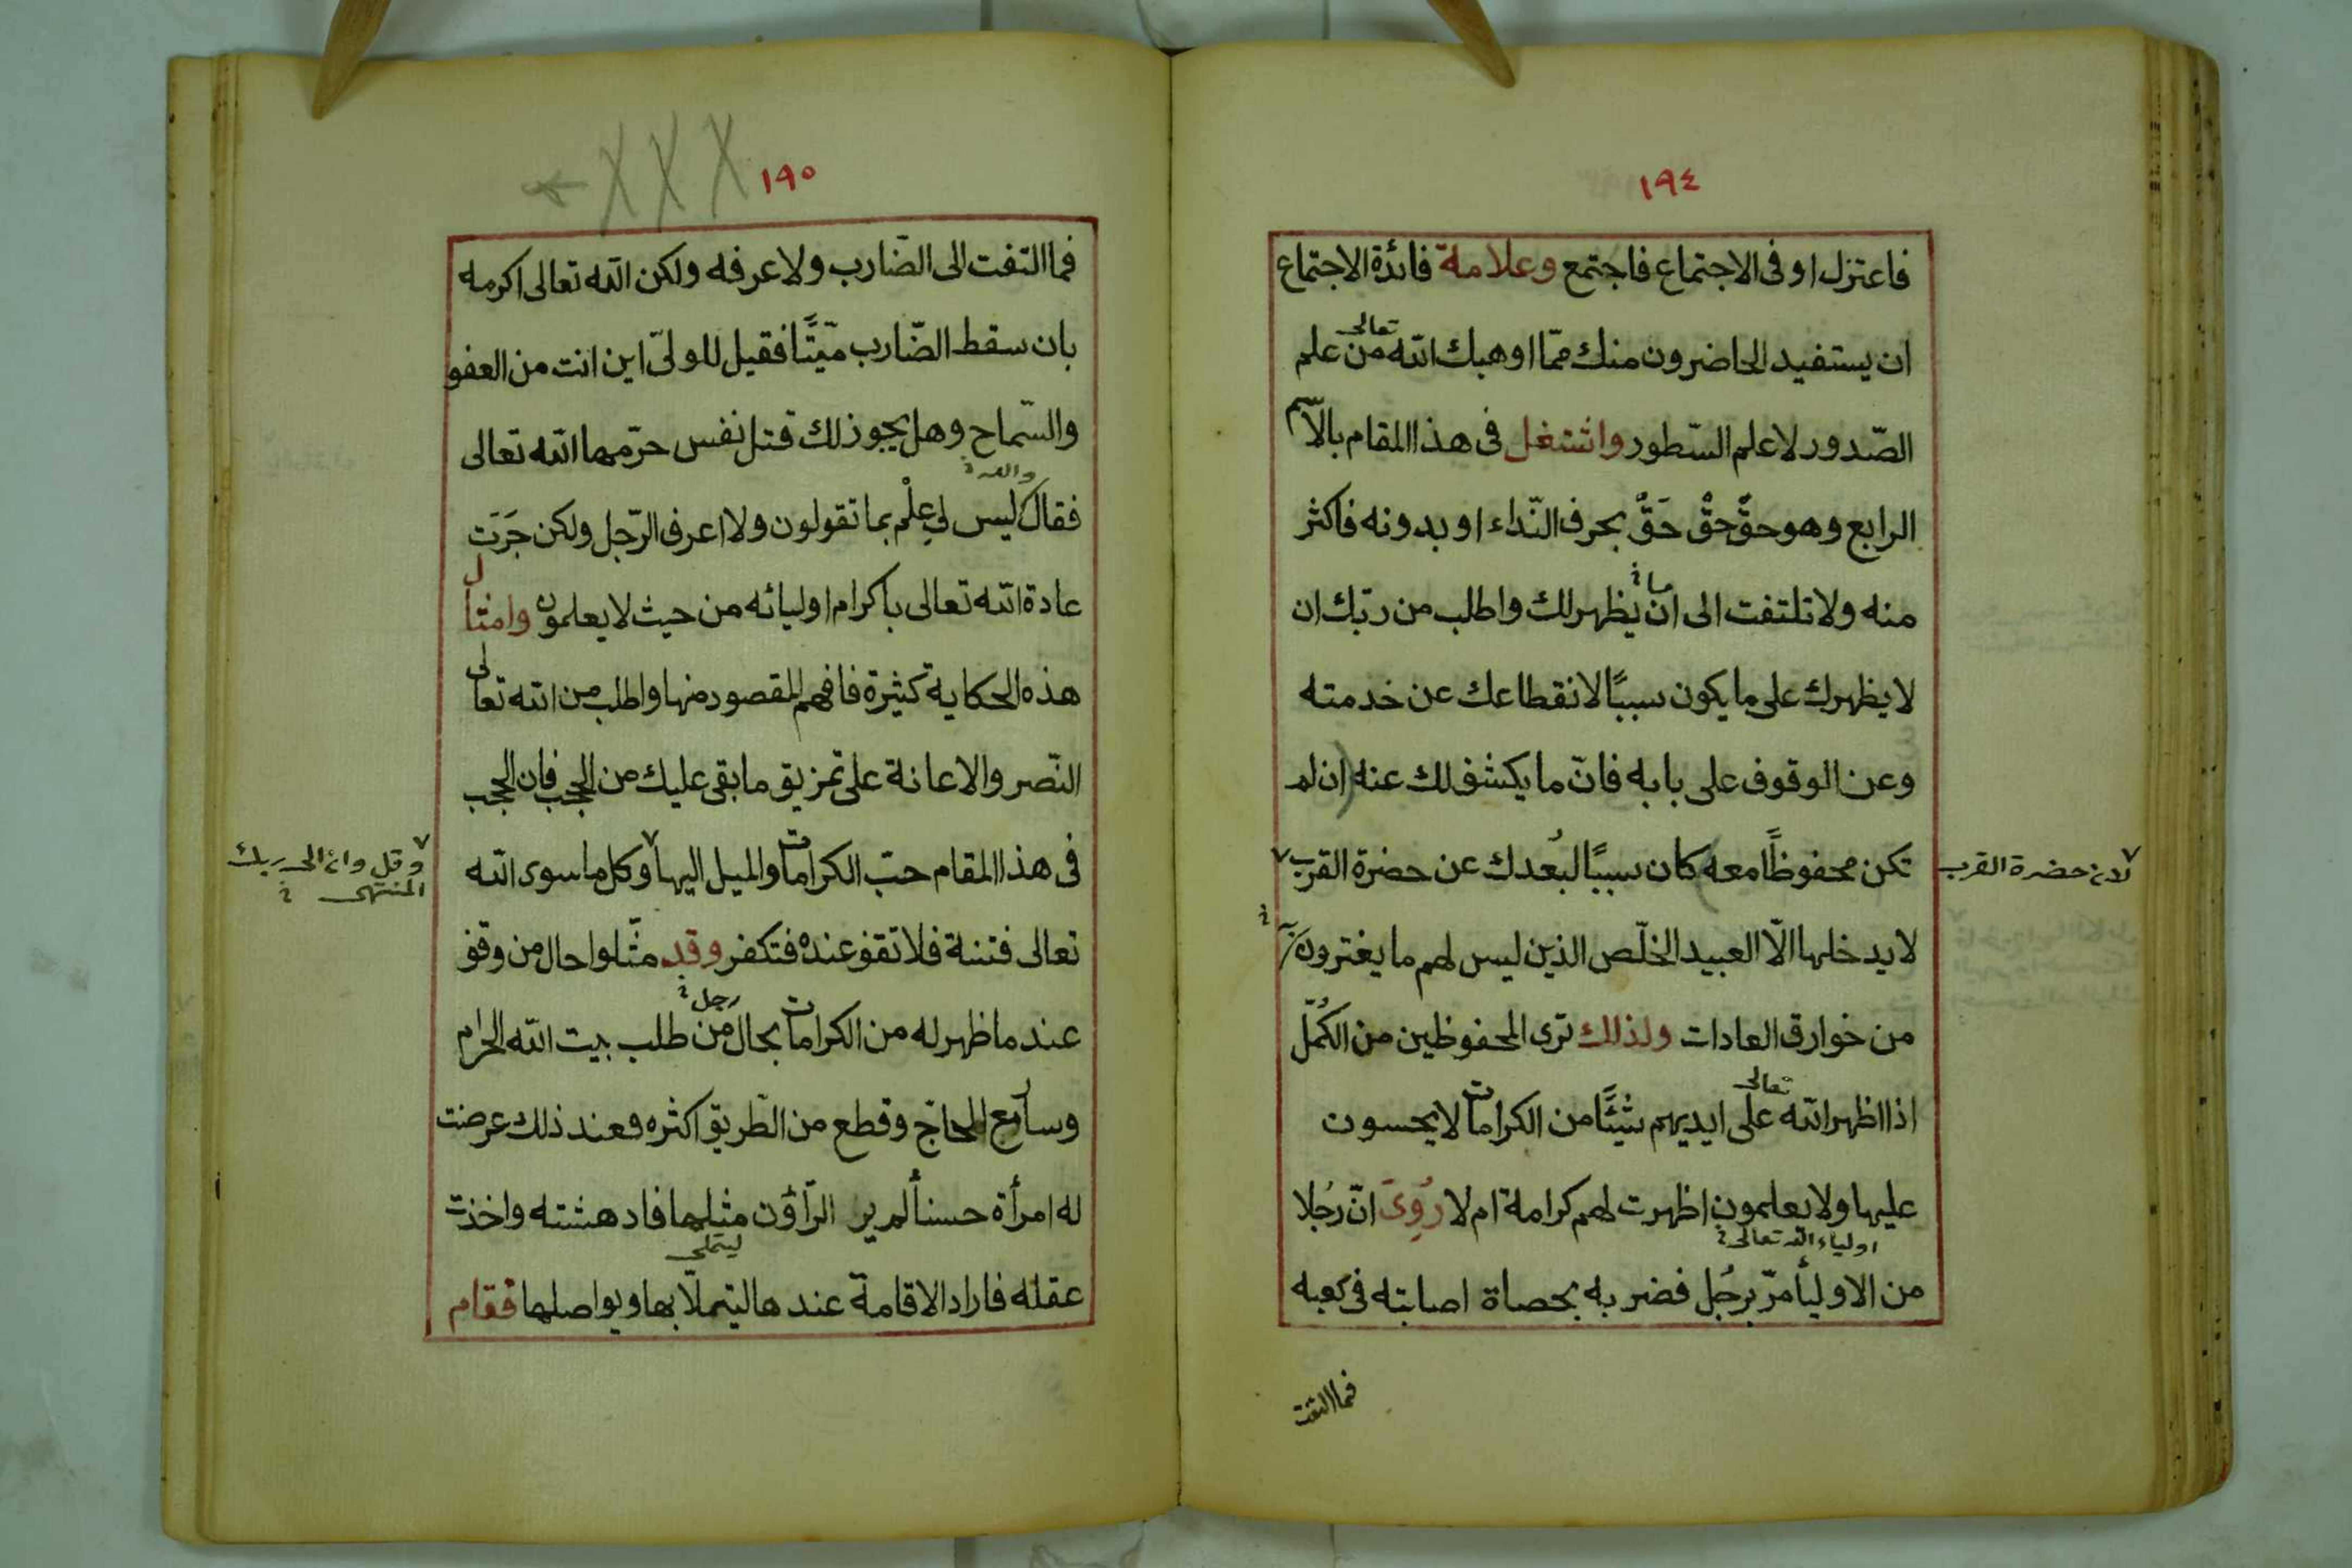 ١٩٤
فاعتزل او فى الاجتماع فاجتمع وعلامة فائدة الاجتماع
ان يستفيد الحاضرون منك ممّا اوهبك الله تعالى من علم
الصّدور لا علم السّطور واشتغل فى هذا المقام بالاسم
الرابع وهو حقّ حقّ حَقّ بحرف النّداء او بدونه فاكثر
منه ولا تلتفت الى ان ما يظهر لك واطلب من ربّك ان
لا يظهرك على ما يكون سببًا لانقطاعك عن خدمته
وعن الوقوف على بابه فانّ ما يكشف لك عنه (ان لم
تكن محفوظًا معه) كان سببًا لبُعدك عن حضرة القرب
لان حضرة القرب
لا يدخلها الّا العبيد الخلّص الذين ليس لهم ما يغترون به
من خوارق العادات ولذلك ترى المحفوظين من الكُمّل
اذا اظهر الله تعالى على ايديهم شيئًا من الكرامات لا يحسون
عليها ولا يعلمون اظهرت لهم كرامة ام لا رُوِىَ انّ رجُلا
اولياء الله تعالى
من الاوليأ مرّ برجُل فضربه بحصاة اصابته فى كعبه
فما التفت
١٩٥
فما التفت الى الضّارب ولا عرفه ولكن الله تعالى اكرمه
بان سقط الضّارب ميّتًا فقيل للولىّ اين انت من العفو
والسّماح وهل يجوز لك قتل نفس حرّمها الله تعالى
فقال والله ليس لي عِلْم بما تقولون ولا اعرف الرّجل ولكن جَرَت
عادة الله تعالى باكرام اوليائه من حيث لا يعلمون وامثال
هذه الحكاية كثيرة فافهم المقصود منها واطلب من الله تعالى
النّصر والاعانة على تمزيق ما بقى عليك من الحجب فان الحجب
فى هذا المقام حبّ الكرامات والميل اليها وكل ما سوى الله
وقل وان الى ربك
المنتهى
تعالى فتنة فلا تقف عنده فتكفر وقد مثّلوا حال من وقف
عند ما ظهر له من الكرامات بحال رجل من طلب بيت الله الحرام
وسار مع الحاجّ وقطع من الطّريق اكثره فعند ذلك عرضت
له امرأة حسنأ لم ير الرّاؤن مثلها فادهشته واخذت
ليتملى
عقله فاراد الاقامة عندها ليتملّا بها ويواصلها فقام